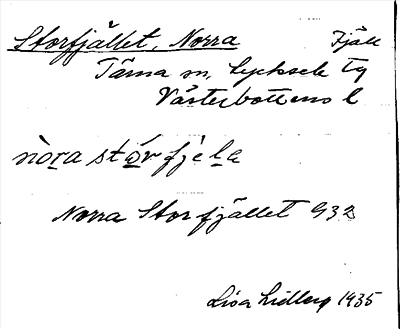 Storfjället, Norra Fjäll
Tärna sn, Lycksele tg
Västerbottens l
nòra stårfjela
Norra Storfjället G32
Lisa Lidberg 1935